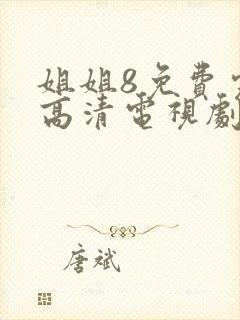 姐姐8免費
高清電視劇
唐斌